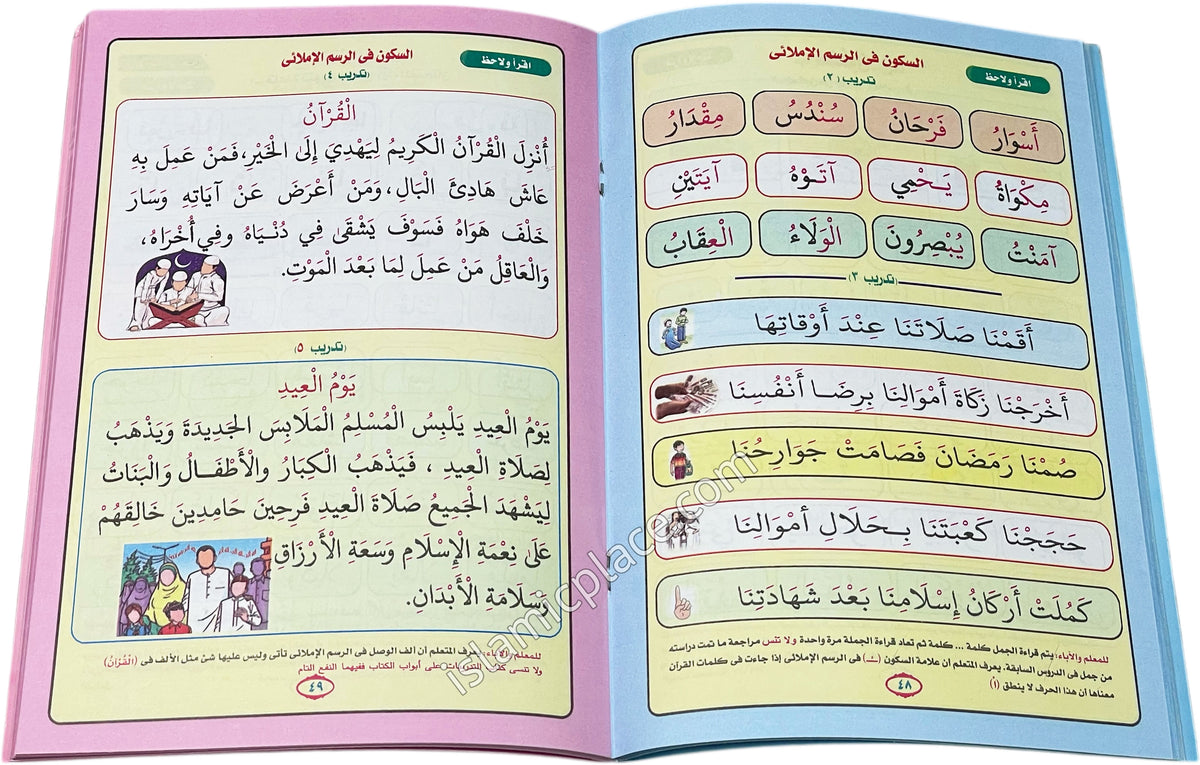 اقرأ ولاحظ
السكون فى الرسم الإملائى
تدريب (٢)
أَسْوَارُ فَرْحَانُ سُنْدُسُ مِقْدَارُ
مِكْوَاةُ يَحْمِي آتَوْهُ آيَتَيْنِ
آمَنْتُ يُبْصِرُونَ الْوَلَاءُ الْعِقَابُ
(تدريب ٣)
أَقَمْنَا صَلَاتَنَا عِنْدَ أَوْقَاتِهَا
أَخْرَجْنَا زَكَاةَ أَمْوَالِنَا بِرِضَا أَنْفُسِنَا
صُمْنَا رَمَضَانَ فَصَامَتْ جَوَارِحُنَا
حَجَجْنَا كَعْبَتَنَا بِحَلَالِ أَمْوَالِنَا
كَمُلَتْ أَرْكَانُ إِسْلَامِنَا بَعْدَ شَهَادَتِنَا
للمعلم والآباء: يتم قراءة الجمل كلمة ... كلمة ثم تعاد قراءة الجملة مرة واحدة ولا تنس مراجعة ما تمت دراسته
من جمل فى الدروس السابقة. يعرف المتعلم أن علامة السكون فى الرسم الإملائى إذا جاءت فى كلمات القرآن
معناها أن هذا الحرف لا ينطق (١)
٤٨
اقرأ ولاحظ
السكون فى الرسم الإملائى
(تدريب ٤)
الْقُرْآنُ
أُنْزِلَ الْقُرْآنُ الْكَرِيمُ لِيَهْدِيَ إِلَى الْخَيْرِ، فَمَنْ عَمِلَ بِهِ
عَاشَ هَادِئَ الْبَالِ، وَمَنْ أَعْرَضَ عَنْ آيَاتِهِ وَسَارَ
خَلْفَ هَوَاهُ فَسَوْفَ يَشْقَى فِي دُنْيَاهُ وَفِي أُخْرَاهُ،
وَالْعَاقِلُ مَنْ عَمِلَ لِمَا بَعْدَ الْمَوْتِ.
(تدريب ٥)
يَوْمُ الْعِيدِ
يَوْمُ الْعِيدِ يَلْبِسُ الْمُسْلِمُ الْمَلَابِسَ الْجَدِيدَةَ وَيَذْهَبُ
لِصَلَاةِ الْعِيدِ ، فَيَذْهَبُ الْكِبَارُ وَالْأَطْفَالُ وَالْبَنَاتُ
لِيَشْهَدَ الْجَمِيعُ صَلَاةَ الْعِيدِ فَرِحِينَ حَامِدِينَ خَالِقَهُمْ
عَلَى نِعْمَةِ الْإِسْلَامِ وَسَعَةِ الْأَرْزَاقِ
وَسَلَامَةِ الْأَبْدَانِ.
للمعلم والآباء: يعرف المتعلم أن الف الوصل فى الرسم الإملائى تأتى وليس عليها شئ مثل الألف فى (الْقُرْآنُ)
ولا تنسى كتب التدريبات على أبواب الكتاب ففيهما النفع التام
٤٩
islamicplace.com